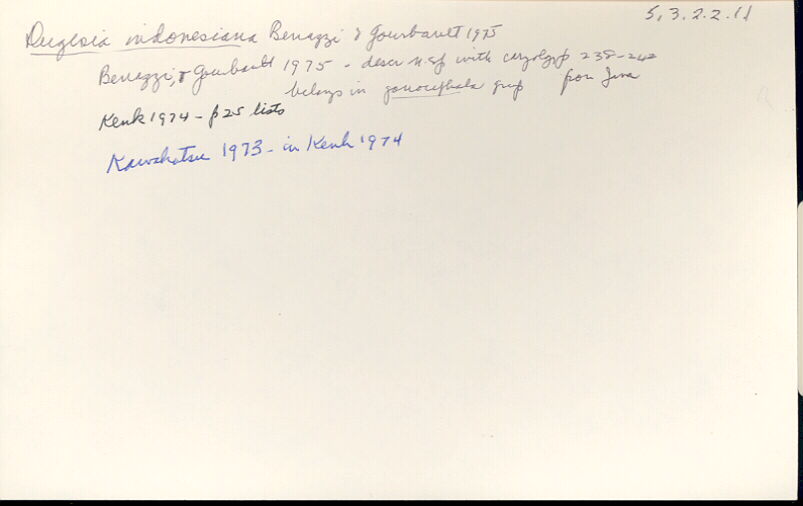 5.3.2.2.11
Dugesia indonesiana Benazzi & Gourbault 1975
Benazzi, & Gourbault 1975 - descr n.sp with caryology p 238-242
belongs in gonocephala group from Java
Kenk 1974 - p 25 lists
Kawakatsu 1973 - in Kenk 1974